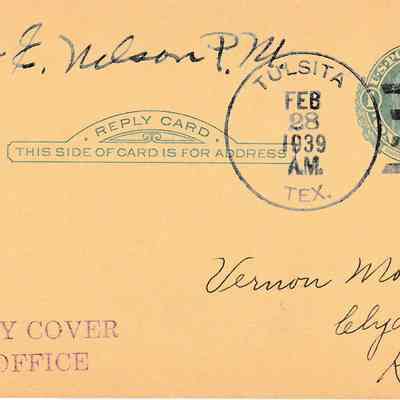 E. Nelson P.M.
TULSITA
FEB
28
1939
A.M.
TEX.
REPLY CARD
THIS SIDE OF CARD IS FOR ADDRESS
Vernon
Y COVER
OFFICE